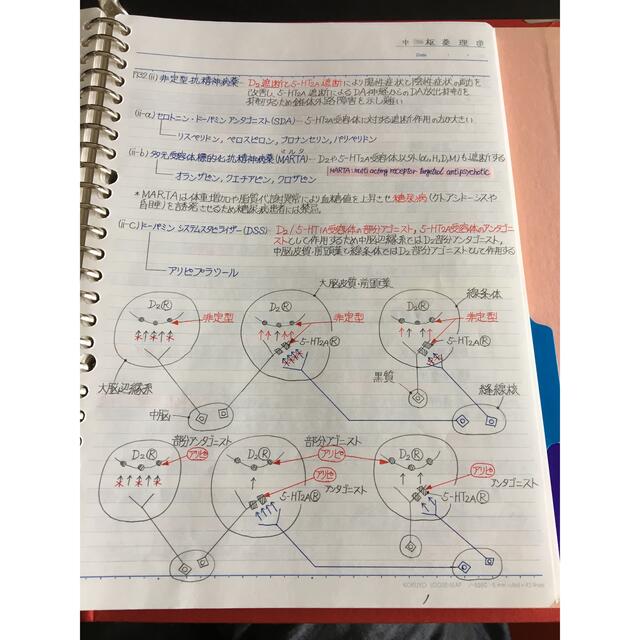 中枢薬理⑪
Date
P.32 (ii) 非定型抗精神病薬 — D₂遮断と5-HT2A遮断により陽性症状と陰性症状の両方を
改善し、5-HT2A遮断によるDA神経からのDA放出抑制を
抑制するため錐体外路障害を示し難い
(ii-a) セロトニン・ドーパミン アンタゴニスト(SDA) — 5-HT2A受容体に対する遮断作用の方が大きい
リスペリドン, ペロスピロン, ブロナンセリン, パリペリドン
マルタ
(ii-b) 多元受容体標的化抗精神病薬(MARTA) — D₂や5-HT2A受容体以外(α₁, H, D, M)も遮断する
MARTA: multi acting receptor targeted antipsychotic
オランザピン, クエチアピン, クロザピン
*MARTAは体重増加や脂質代謝異常により血糖値を上昇させ糖尿病(ケトアシドーシスや
昏睡)を誘発させるため糖尿病患者には禁忌。
(ii-c) ドーパミン システムスタビライザー(DSS) — D₂/5-HT1A受容体の部分アゴニスト, 5-HT2A受容体のアンタゴニ
ストとして作用するため中脳辺縁系ではD₂部分アンタゴニスト,
中脳皮質・前頭葉と線条体ではD₂部分アゴニストとして作用する
アリピプラゾール
大脳皮質・前頭葉
線条体
D₂Ⓡ
D₂Ⓡ
D₂Ⓡ
非定型
非定型
非定型
5-HT2AⓇ
5-HT2AⓇ
大脳辺縁系
黒質
中脳
縫線核
部分アンタゴニスト
部分アゴニスト
D₂Ⓡ
アリピ
D₂Ⓡ
アリピ
D₂Ⓡ
アリピ
アリピ
アンタゴニスト
アンタゴニスト
5-HT2AⓇ
5-HT2AⓇ
KOKUYO LOOSE-LEAF